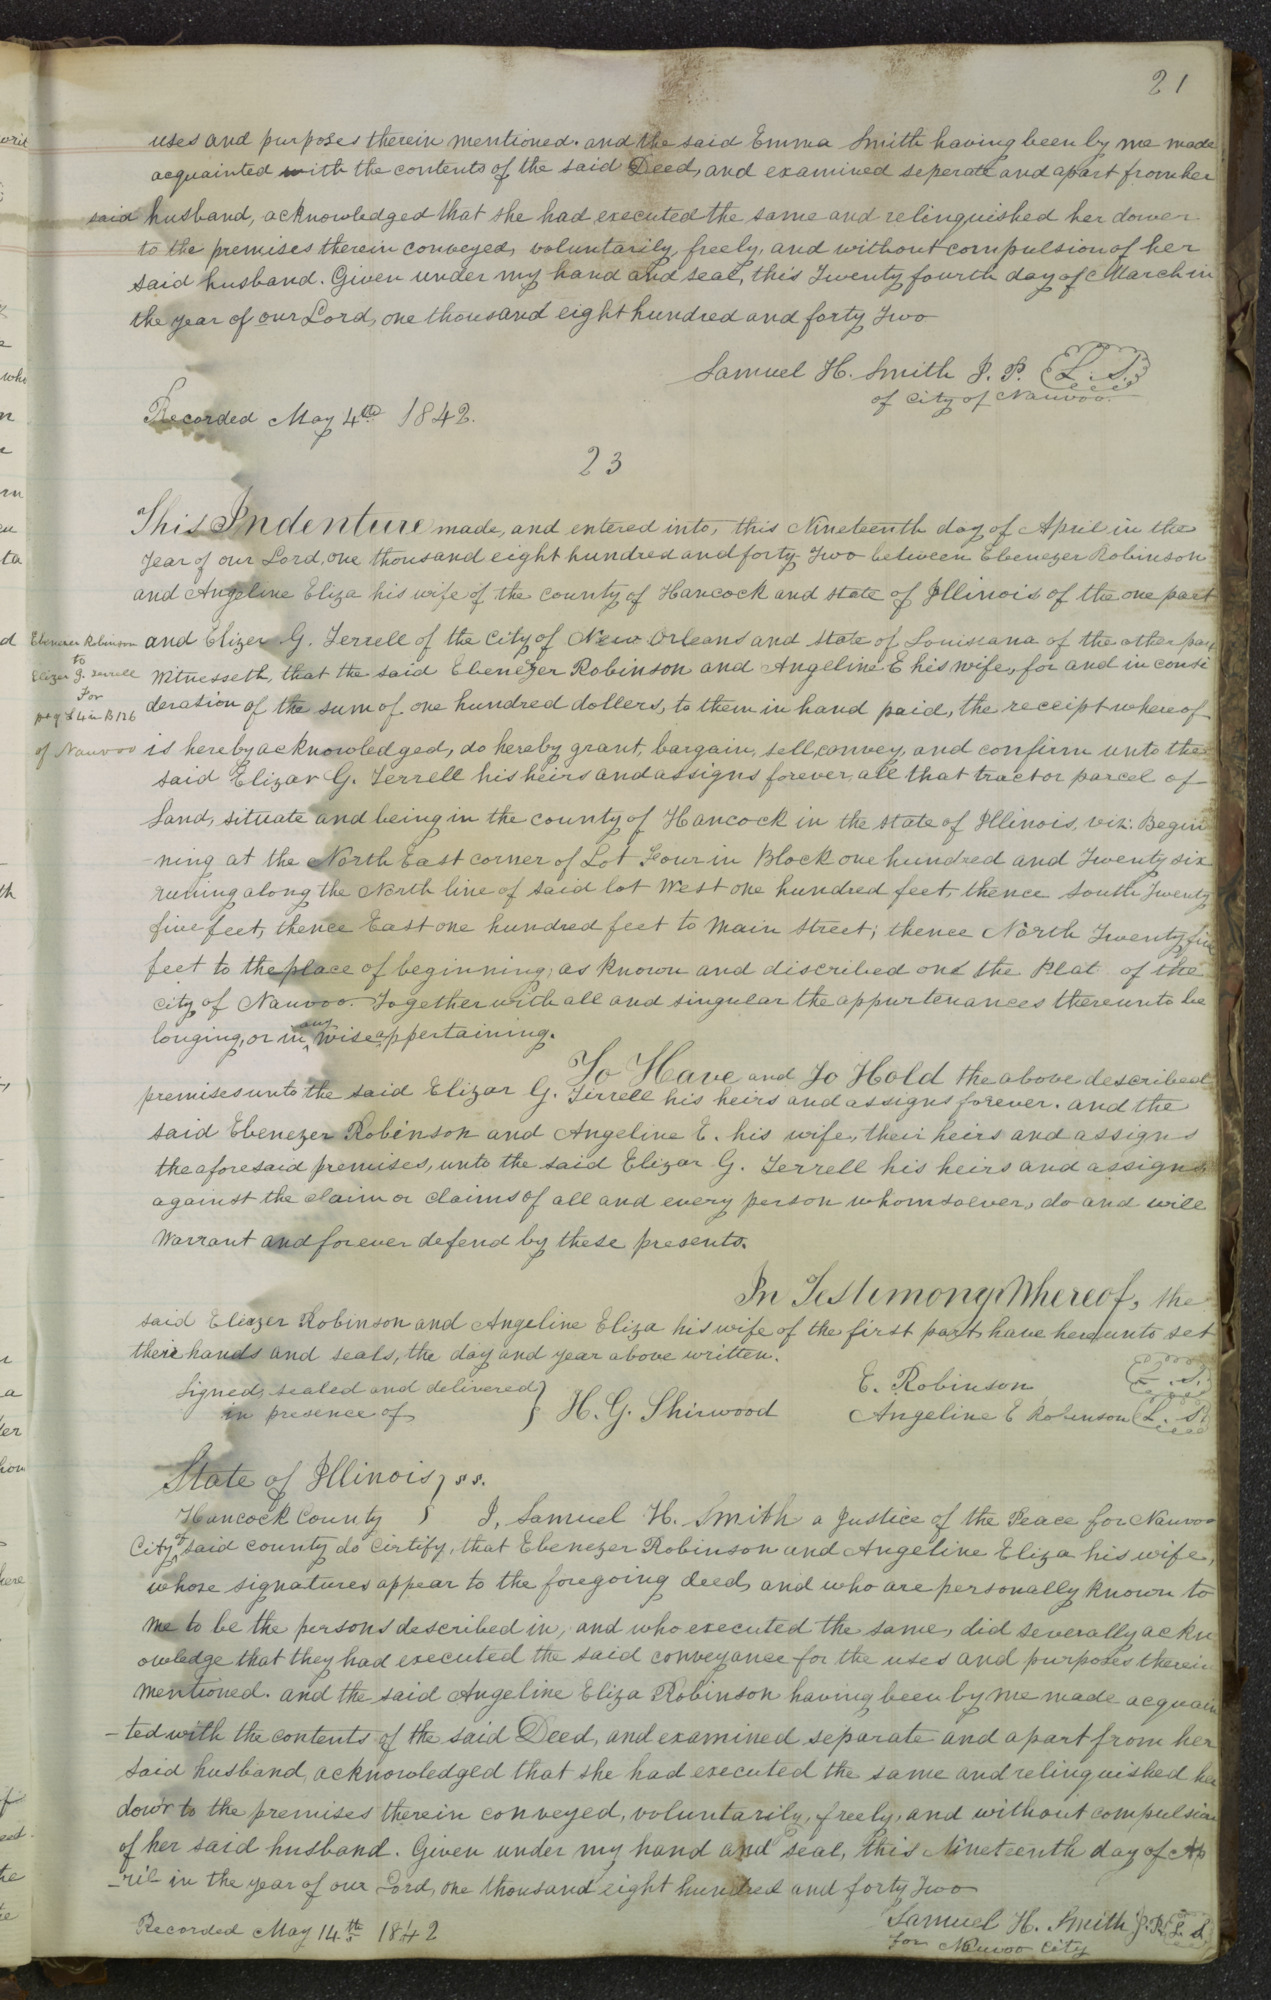 21
uses and purposes therein mentioned. and the said Emma Smith having been by me made
acquainted with the contents of the said Deed, and examined seperate and apart from her
said husband, acknowledged that she had executed the same and relinquished her dower
to the premises therein conveyed, voluntarily, freely, and without compulsion of her
said husband. Given under my hand and seal, this Twenty fourth day of March in
the year of our Lord, one thousand eight hundred and forty Two
Samuel H. Smith J. P. (L. S.)
of City of Nauvoo.
Recorded May 4th 1842.
23
This Indenture made, and entered into, this Nineteenth day of April in the
Year of our Lord, one thousand eight hundred and forty Two between Ebenezer Robinson
and Angeline Eliza his wife of the county of Hancock and state of Illinois of the one part
and Elizer G. Terrell of the city of New Orleans and state of Louisiana of the other part
Ebenezer Robinson
to
Elizer G. Terrell
For
pt of L 4 in B 126
of Nauvoo
Witnesseth, that the said Ebenezer Robinson and Angeline E his wife, for and in consi
deration of the sum of one hundred dollers, to them in hand paid, the receipt whereof
is hereby acknowledged, do hereby grant, bargain, sell, convey, and confirm unto the
said Elizar G. Terrell his heirs and assigns forever, all that tract or parcel of
Land, situate and being in the county of Hancock in the state of Illinois, viz: Begin
-ning at the North East corner of Lot Four in Block one hundred and Twenty six
runing along the North line of said lot West one hundred feet, thence South Twenty
five feet, thence East one hundred feet to Main Street; thence North Twenty five
feet to the place of beginning; as known and discribed ond the Plat of the
city of Nauvoo. Together with all and singular the appurtenances thereunto be
longing, or in any wise appertaining.
To Have and To Hold the above described
premises unto the said Elizar G. Terrell his heirs and assigns forever. and the
said Ebenezer Robinson and Angeline E. his wife, their heirs and assigns
the aforesaid premises, unto the said Elizar G. Terrell his heirs and assigns
against the claim or claims of all and every person whomsoever, do and will
Warrant and forever defend by these presents.
In Testimony Whereof, the
said Eliezer Robinson and Angeline Eliza his wife of the first part, have hereunto set
their hands and seals, the day and year above written.
Signed, sealed and delivered }
in presence of } H. G. Shirwood
E. Robinson (L. S.)
Angeline E Robinson (L. S.)
State of Illinois } s s.
Hancock County } I, Samuel H. Smith a Justice of the Peace for Nauvoo
City of said county do Certify, that Ebenezer Robinson and Angeline Eliza his wife,
whose signatures appear to the foregoing deed, and who are personally known to
me to be the persons described in, and who executed the same, did severally ackn
owledge that they had executed the said conveyance for the uses and purposes therein
mentioned. and the said Angeline Eliza Robinson having been by me made acquain
-ted with the contents of the said Deed, and examined separate and apart from her
said husband, acknowledged that she had executed the same and relinquished her
dowr to the premises therein conveyed, voluntarily, freely, and without compulsion
of her said husband. Given under my hand and seal, this Nineteenth day of Ap
-ril in the year of our Lord, one thousand eight hundred and forty Two
Samuel H. Smith J. P. (L. S.)
For Nauvoo City
Recorded May 14th 1842